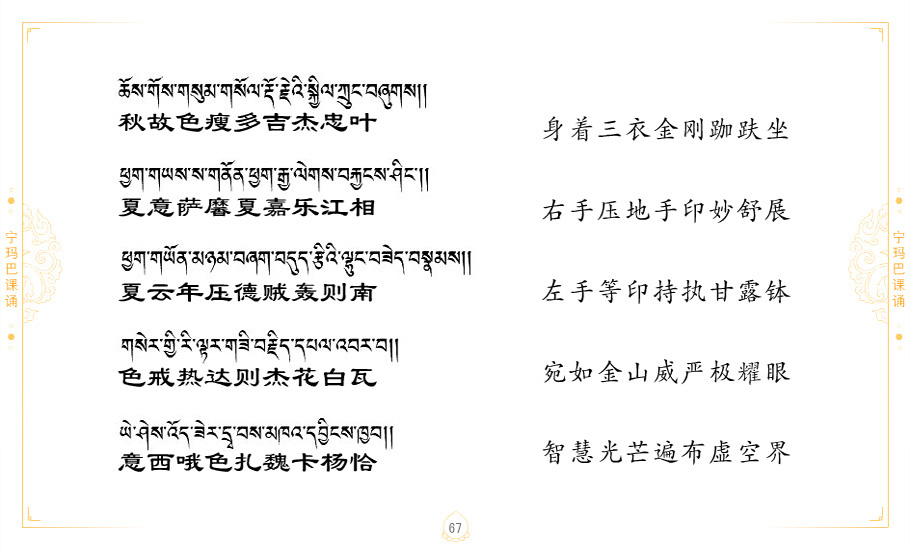 ཆོས་གོས་གསུམ་གསོལ་རྡོ་རྗེའི་སྐྱིལ་ཀྲུང་བཞུགས།།
秋故色瘦多吉杰忠叶
身着三衣金刚跏趺坐
ཕྱག་གཡས་ས་གནོན་ཕྱག་རྒྱ་ལེགས་བརྐྱངས་ཤིང་།།
夏意萨麐夏嘉乐江相
右手压地手印妙舒展
ཕྱག་གཡོན་མཉམ་བཞག་བདུད་རྩིའི་ལྷུང་བཟེད་བསྣམས།།
夏云年压德贼轰则南
左手等印持执甘露钵
གསེར་གྱི་རི་ལྟར་གཟི་བརྗིད་དཔལ་འབར་བ།།
色戒热达则杰花白瓦
宛如金山威严极耀眼
ཡེ་ཤེས་འོད་ཟེར་དྲྭ་བས་མཁའ་དབྱིངས་ཁྱབ།།
意西哦色扎魏卡杨恰
智慧光芒遍布虚空界
宁玛巴课诵
宁玛巴课诵
67